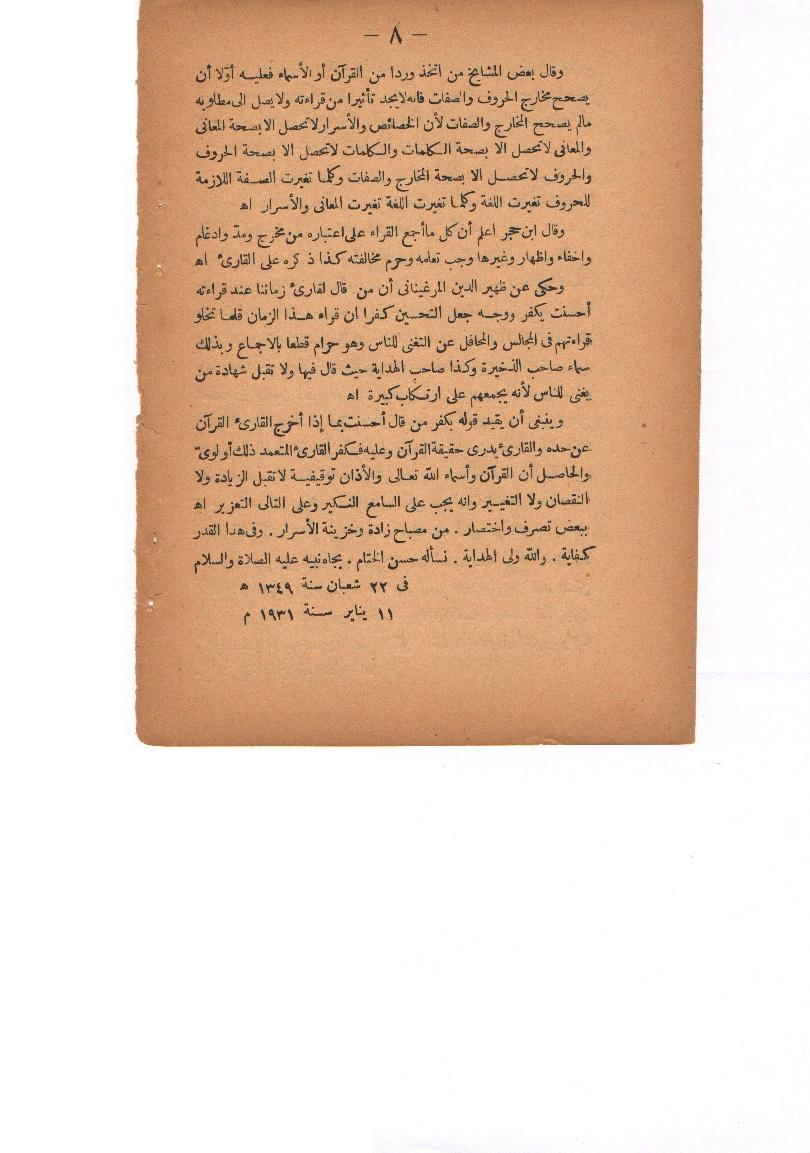 — ٨ —
وقال بعض المشايخ من اتخذ وردا من القرآن أو الأسماء فعليه أوّلا أن
يصحح مخارج الحروف والصفات فانه لا يجد تأثيرا من قراءته ولا يصل الى مطلوبه
مالم يصحح المخارج والصفات لأن الخصائص والأسرار لا تحصل الا بصحة المعانى
والمعانى لا تحصل الا بصحة الكلمات والكلمات لا تحصل الا بصحة الحروف
والحروف لا تحصل الا بصحة المخارج والصفات وكلما تغيرت الصفة اللازمة
للحروف تغيرت اللغة وكلما تغيرت اللغة تغيرت المعانى والأسرار اه
وقال ابن حجر اعلم أن كل ما أجمع القراء على اعتباره من مخرج ومدّ وادغام
واخفاء واظهار وغيرها وجب تعلمه وحرم مخالفته كذا ذكره على القارئ اه
وحكى عن ظهير الدين المرغينانى أن من قال لقارئ زماننا عند قراءته
أحسنت يكفر ووجه جعل التحسين كفرا ان قراء هذا الزمان قلما تخلو
قراءتهم فى المجالس والمحافل عن التغنى للناس وهو حرام قطعا بالاجماع وبذلك
سماه صاحب الذخيرة وكذا صاحب الهداية حيث قال فيها ولا تقبل شهادة من
يغنى للناس لأنه يجمعهم على ارتكاب كبيرة اه
وينبغى أن يقيد قوله بكفر من قال أحسنت بما إذا أخرج القارئ القرآن
عن حده والقارئ يدرى حقيقة القرآن وعليه فكفر القارئ المتعمد ذلك أولوىّ
والحاصل أن القرآن وأسماء الله تعالى والأذان توقيفية لا تقبل الزيادة ولا
النقصان ولا التغيير وانه يجب على السامع النكير وعلى التالى التعزير اه
ببعض تصرف واختصار . من مصباح زادة وخزينة الأسرار . وفى هذا القدر
كفاية . والله ولى الهداية . نسأله حسن الختام . بجاه نبيه عليه الصلاة والسلام
فى ٢٢ شعبان سنة ١٣٤٩ ه
١١ يناير سنة ١٩٣١ م